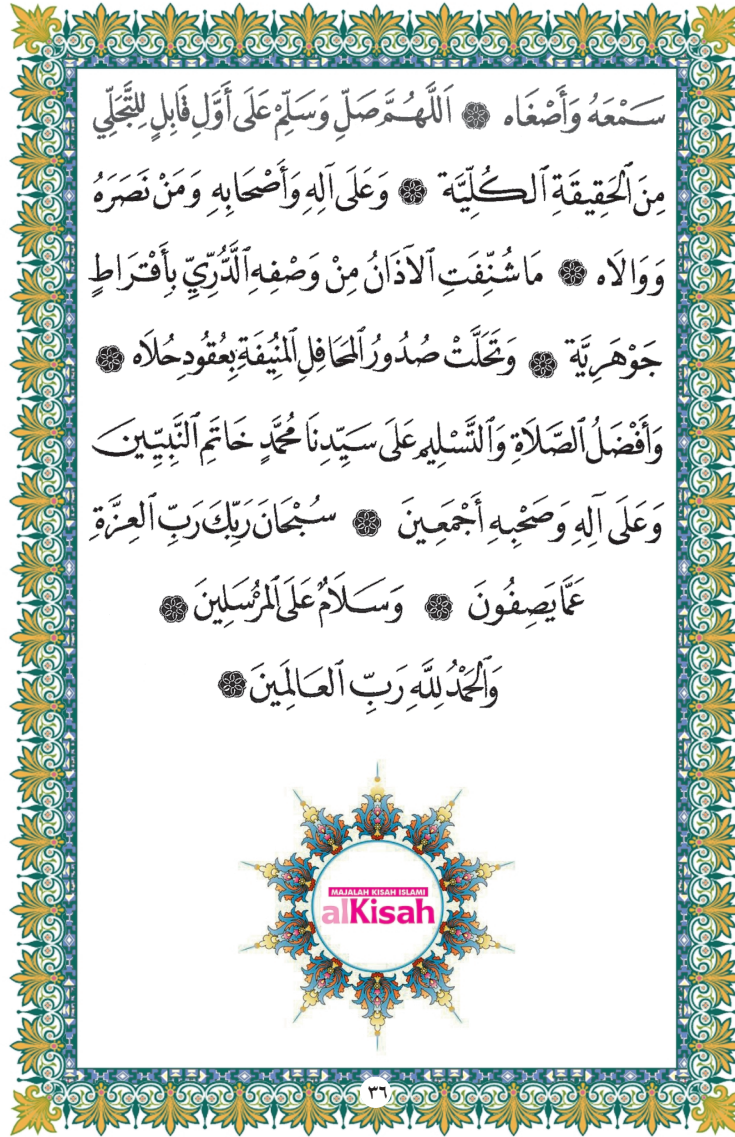 سَمْعَهُ وَأَصْغَاه ۞ اَللّٰهُمَّ صَلِّ وَسَلِّمْ عَلَى أَوَّلِ قَابِلٍ لِلتَّجَلِّي
مِنَ ٱلْحَقِيقَةِ ٱلكُلِّيَّة ۞ وَعَلَى آلِهِ وَأَصْحَابِهِ وَمَنْ نَصَرَهُ
وَوَالَاه ۞ مَا شُنِّفَتِ ٱلآذَانُ مِنْ وَصْفِهِ ٱلدُّرِّيِّ بِأَقْرَاطٍ
جَوْهَرِيَّة ۞ وَتَحَلَّتْ صُدُورُ ٱلمَحَافِلِ ٱلمُنِيفَةِ بِعُقُودِ حُلَاه ۞
وَأَفْضَلُ ٱلصَّلَاةِ وَٱلتَّسْلِيمِ عَلَى سَيِّدِنَا مُحَمَّدٍ خَاتَمِ ٱلنَّبِيِّينَ
وَعَلَى آلِهِ وَصَحْبِهِ أَجْمَعِينَ ۞ سُبْحَانَ رَبِّكَ رَبِّ ٱلعِزَّةِ
عَمَّا يَصِفُونَ ۞ وَسَلَامٌ عَلَى ٱلمُرْسَلِينَ ۞
وَٱلْحَمْدُ لِلَّهِ رَبِّ ٱلعَالَمِينَ ۞
MAJALAH KISAH ISLAMI
alKisah
٣٦